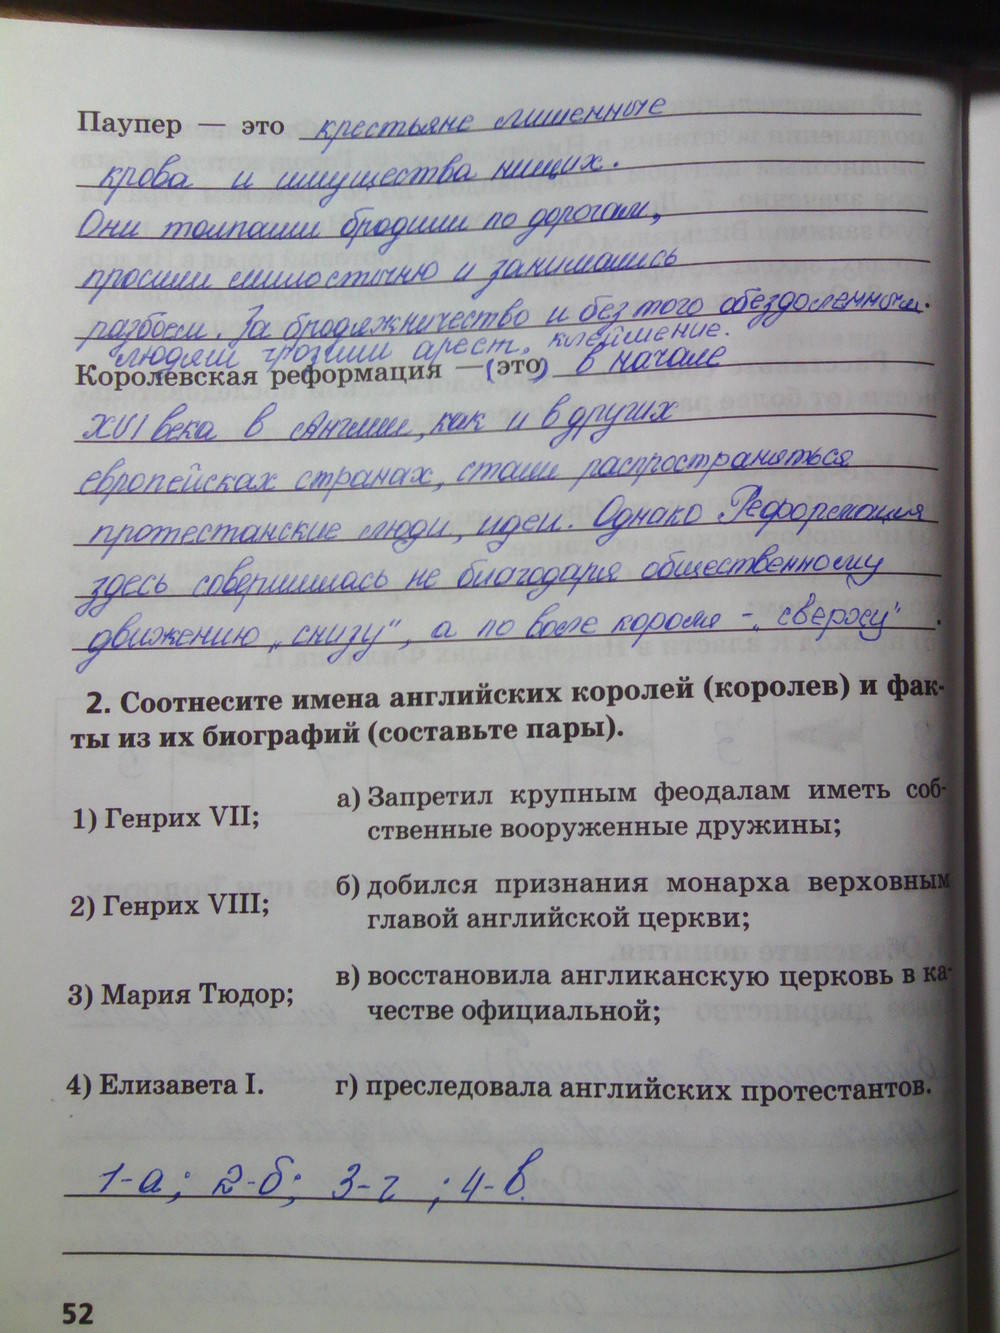 Паупер — это крестьяне лишенные
крова и имущества нищих.
Они толпами бродили по дорогам,
просили милостыню и занимались
разбоем. За бродяжничество и без того обездоленным
людям грозили арест, клеймение.
Королевская реформация — (это) в начале
XVI века в Англии, как и в других
европейсках странах, стали распространяться
протестанские люди, идеи. Однако Реформация
здесь совершилась не благодаря общественному
движению „снизу", а по воле короля - „сверху".
2. Соотнесите имена английских королей (королев) и фак-
ты из их биографий (составьте пары).
1) Генрих VII;
а) Запретил крупным феодалам иметь соб-
ственные вооруженные дружины;
2) Генрих VIII;
б) добился признания монарха верховным
главой английской церкви;
3) Мария Тюдор;
в) восстановила англиканскую церковь в ка-
честве официальной;
4) Елизавета I.
г) преследовала английских протестантов.
1-а; 2-б; 3-г ; 4-в.
52